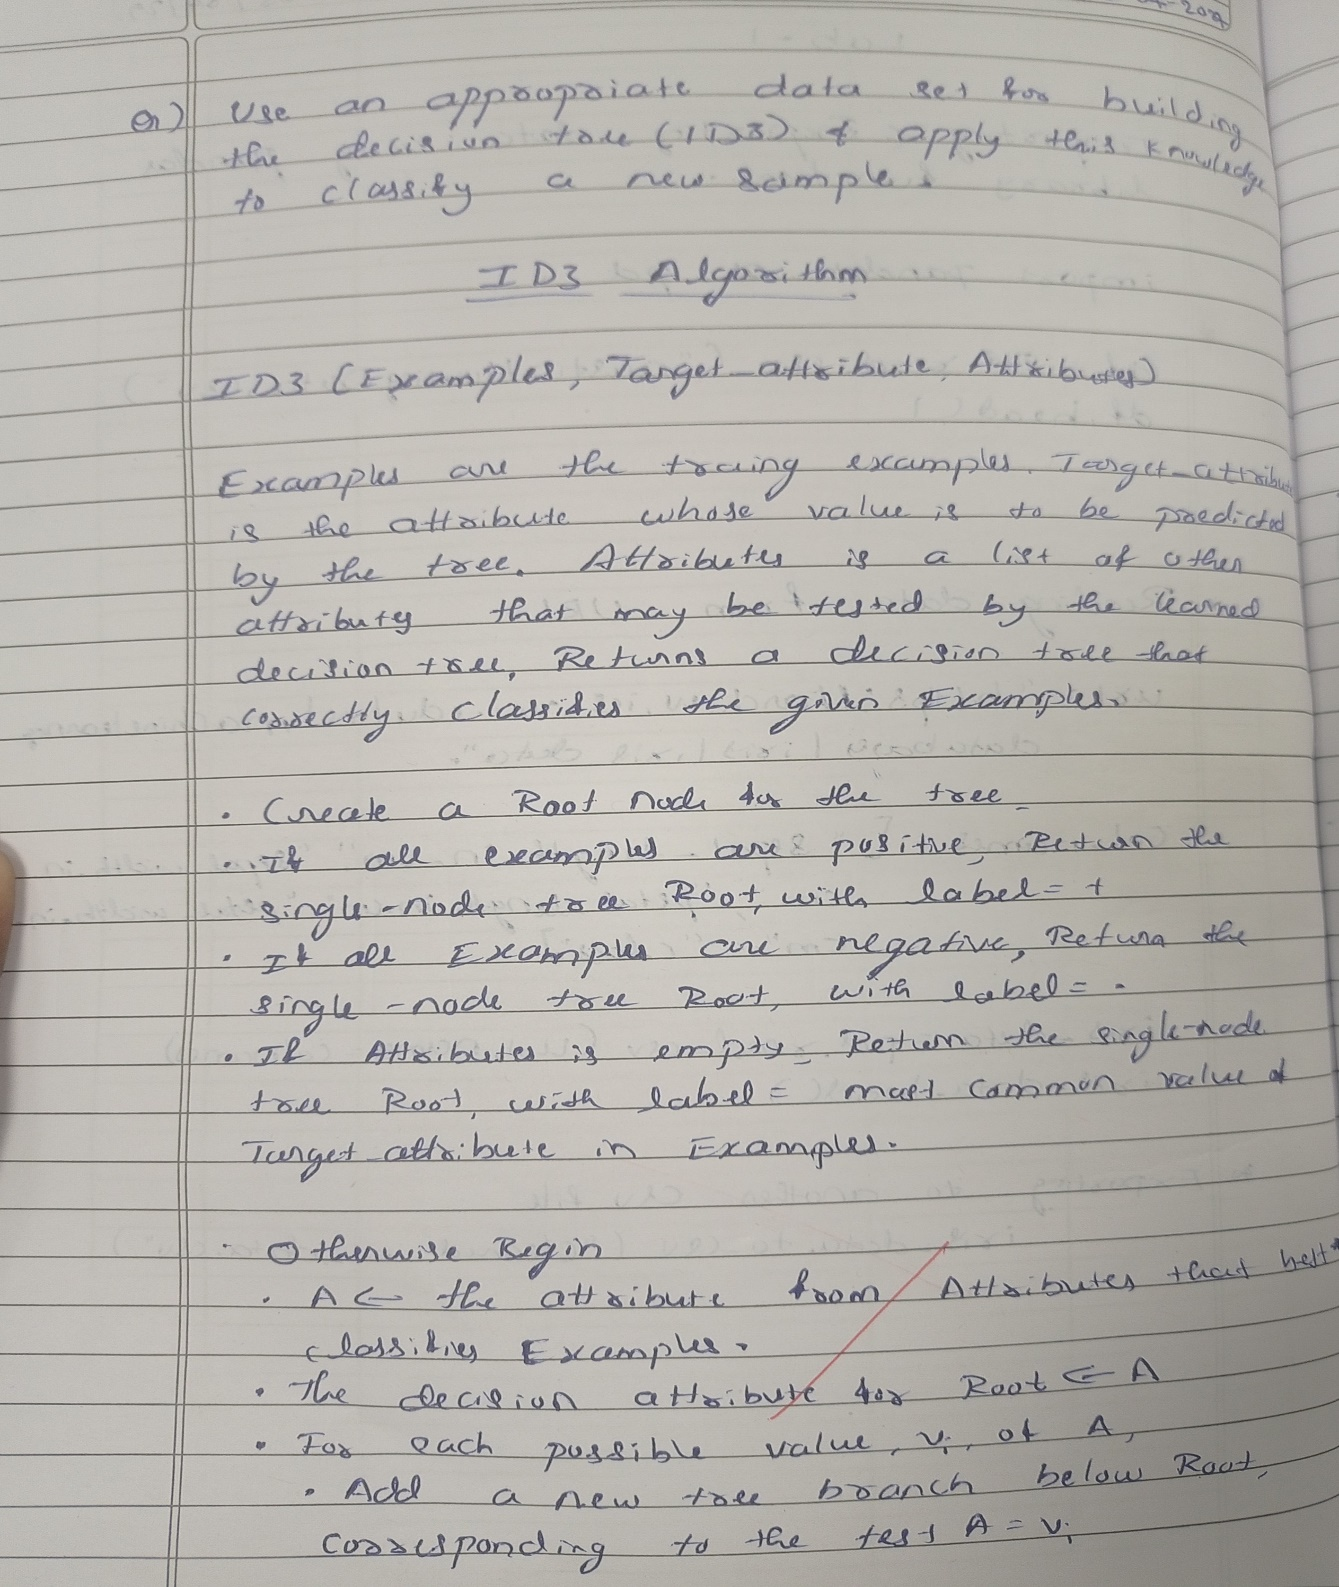 Q) Use an appropriate data set for building
the decision tree (ID3) & apply this knowledge
to classify a new sample.
ID3 Algorithm
ID3 (Examples, Target_attribute, Attributes)
Examples are the traing examples. Target_attribute
is the attribute whose value is to be predicted
by the tree. Attributes is a list of other
attributes that may be tested by the learned
decision tree, Returns a decision tree that
correctly classifies the given Examples.
• Create a Root node for the tree
• If all examples are positive, Return the
single-node tree Root, with label = +
• If all Examples are negative, Return the
single-node tree Root, with label = -
• If Attributes is empty, Return the single-node
tree Root, with label = most common value of
Target_attribute in Examples.
• Otherwise Begin
• A ← the attribute from Attributes that best
classifies Examples.
• The decision attribute for Root ← A
• For each possible value, vi, of A,
• Add a new tree branch below Root,
corresponding to the test A = vi